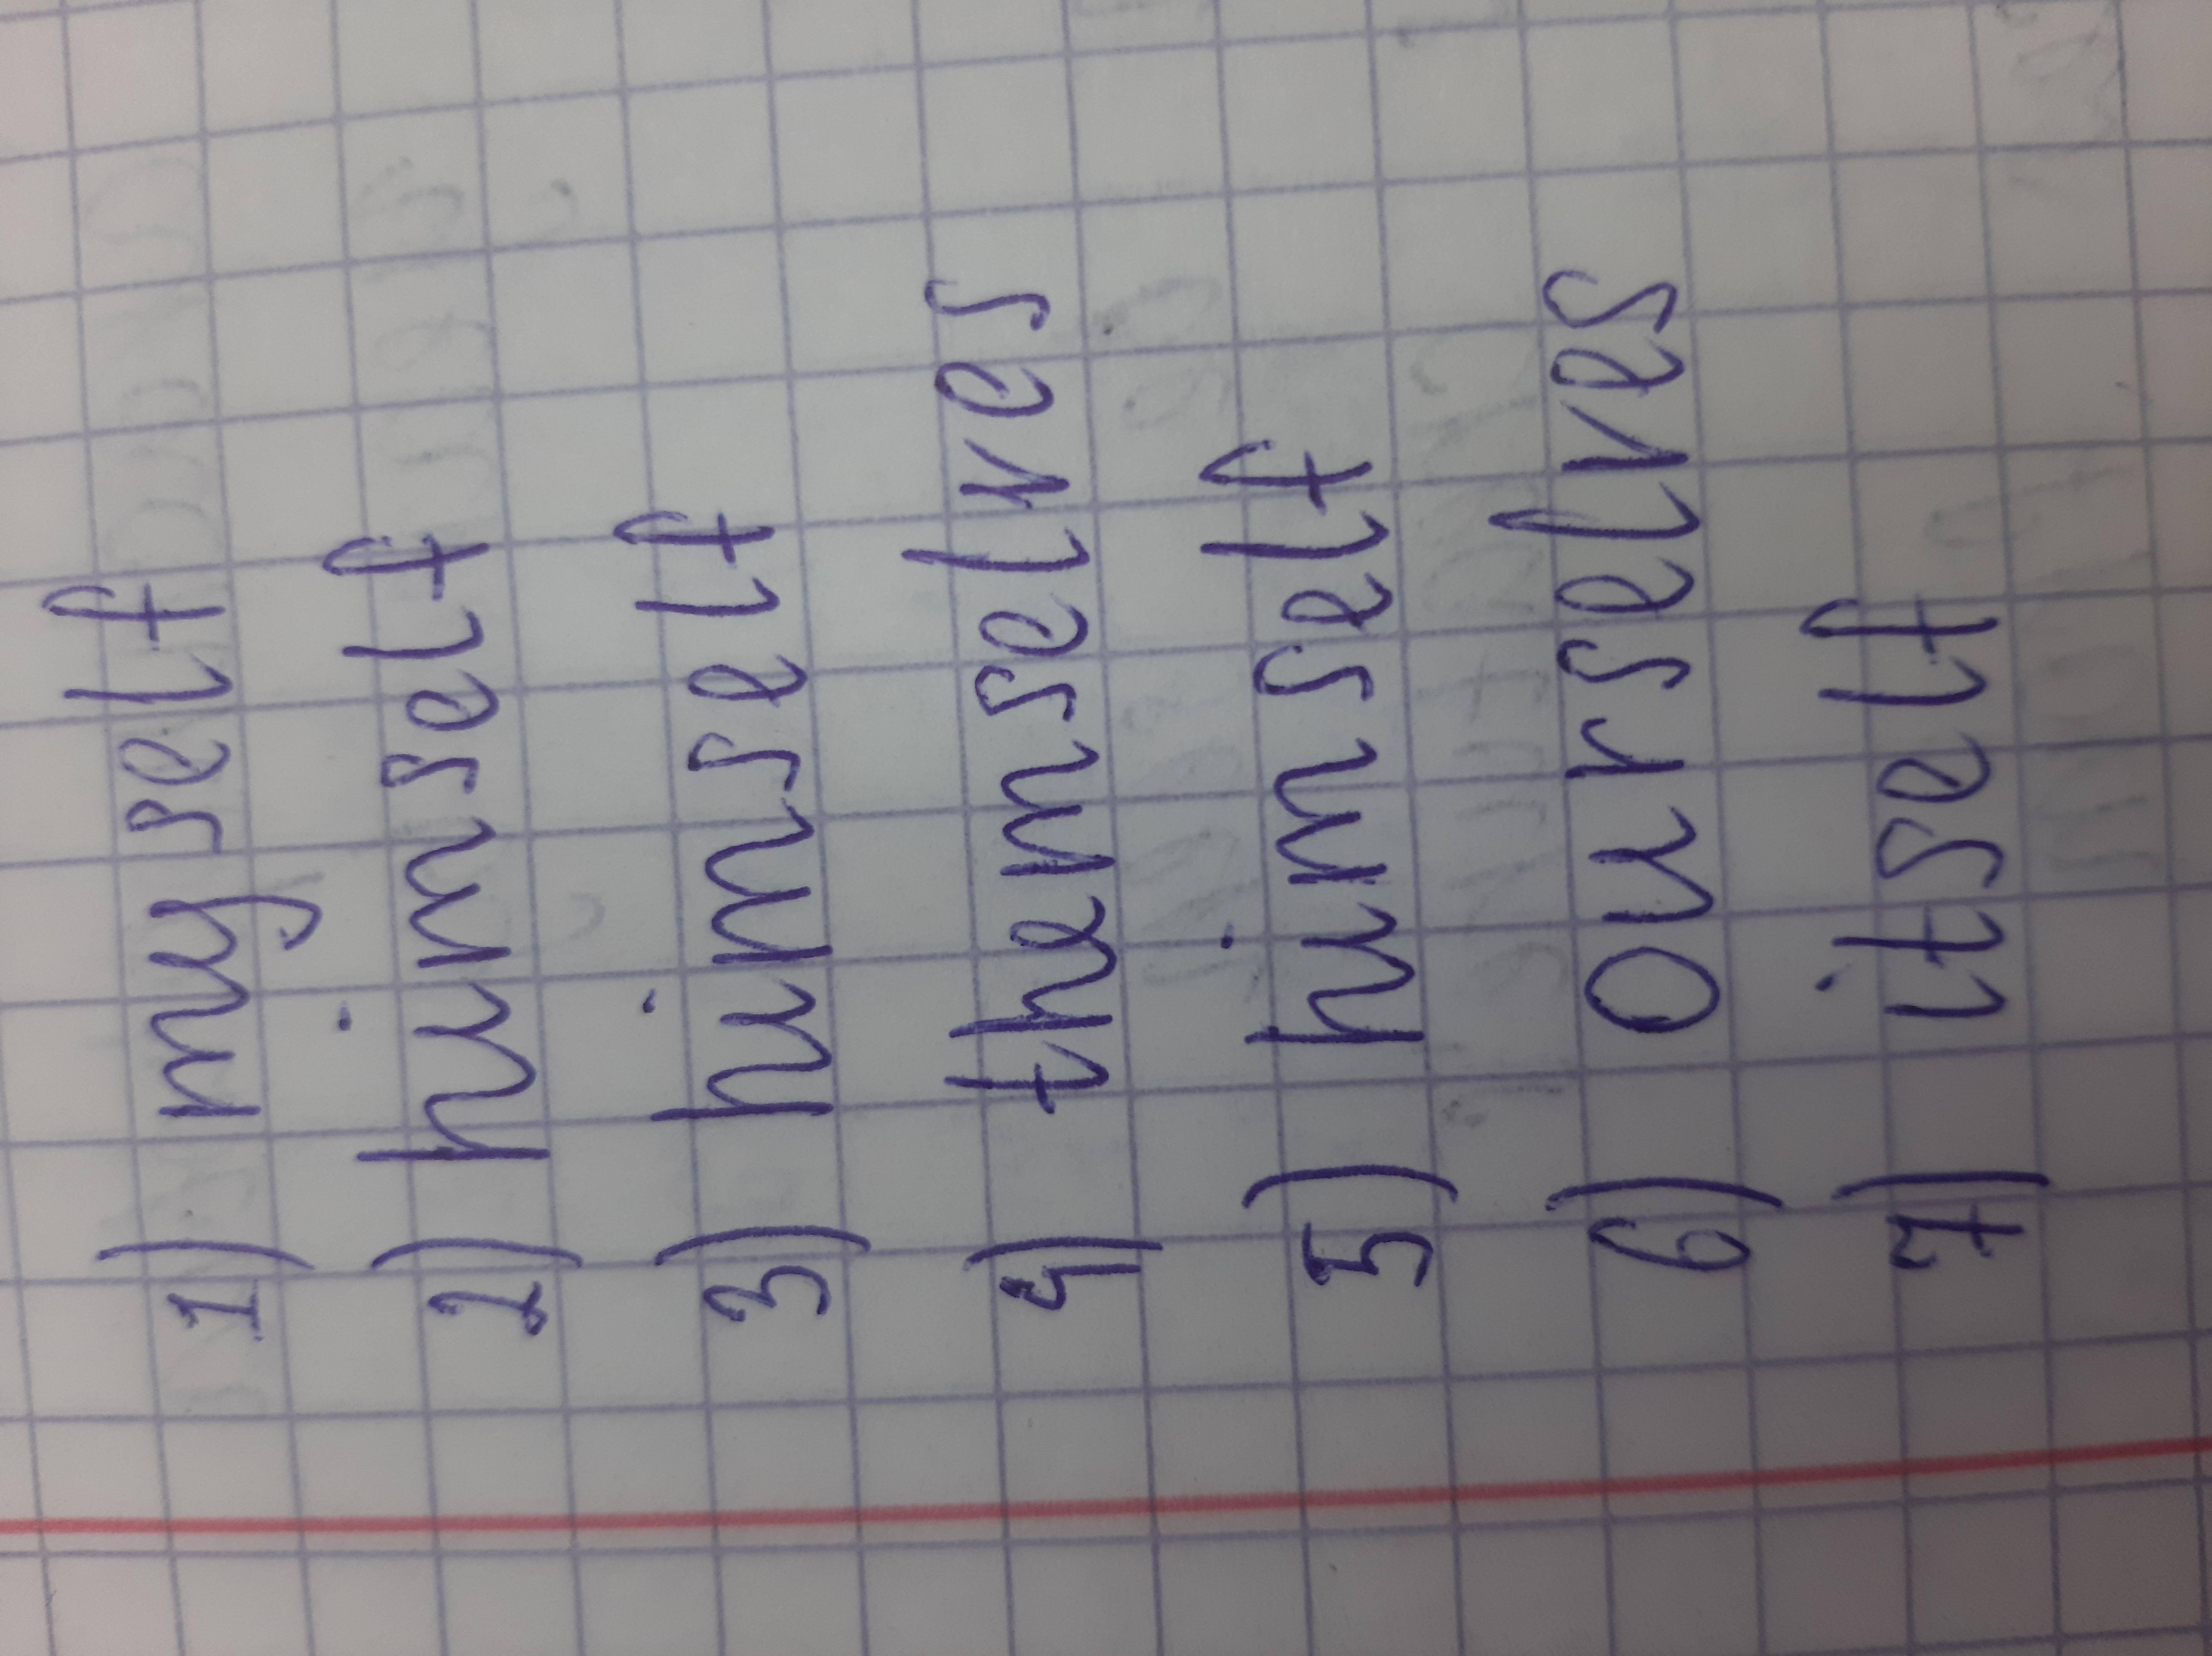 1) myself
2) himself
3) himself
4) themselves
5) himself
6) ourselves
7) itself